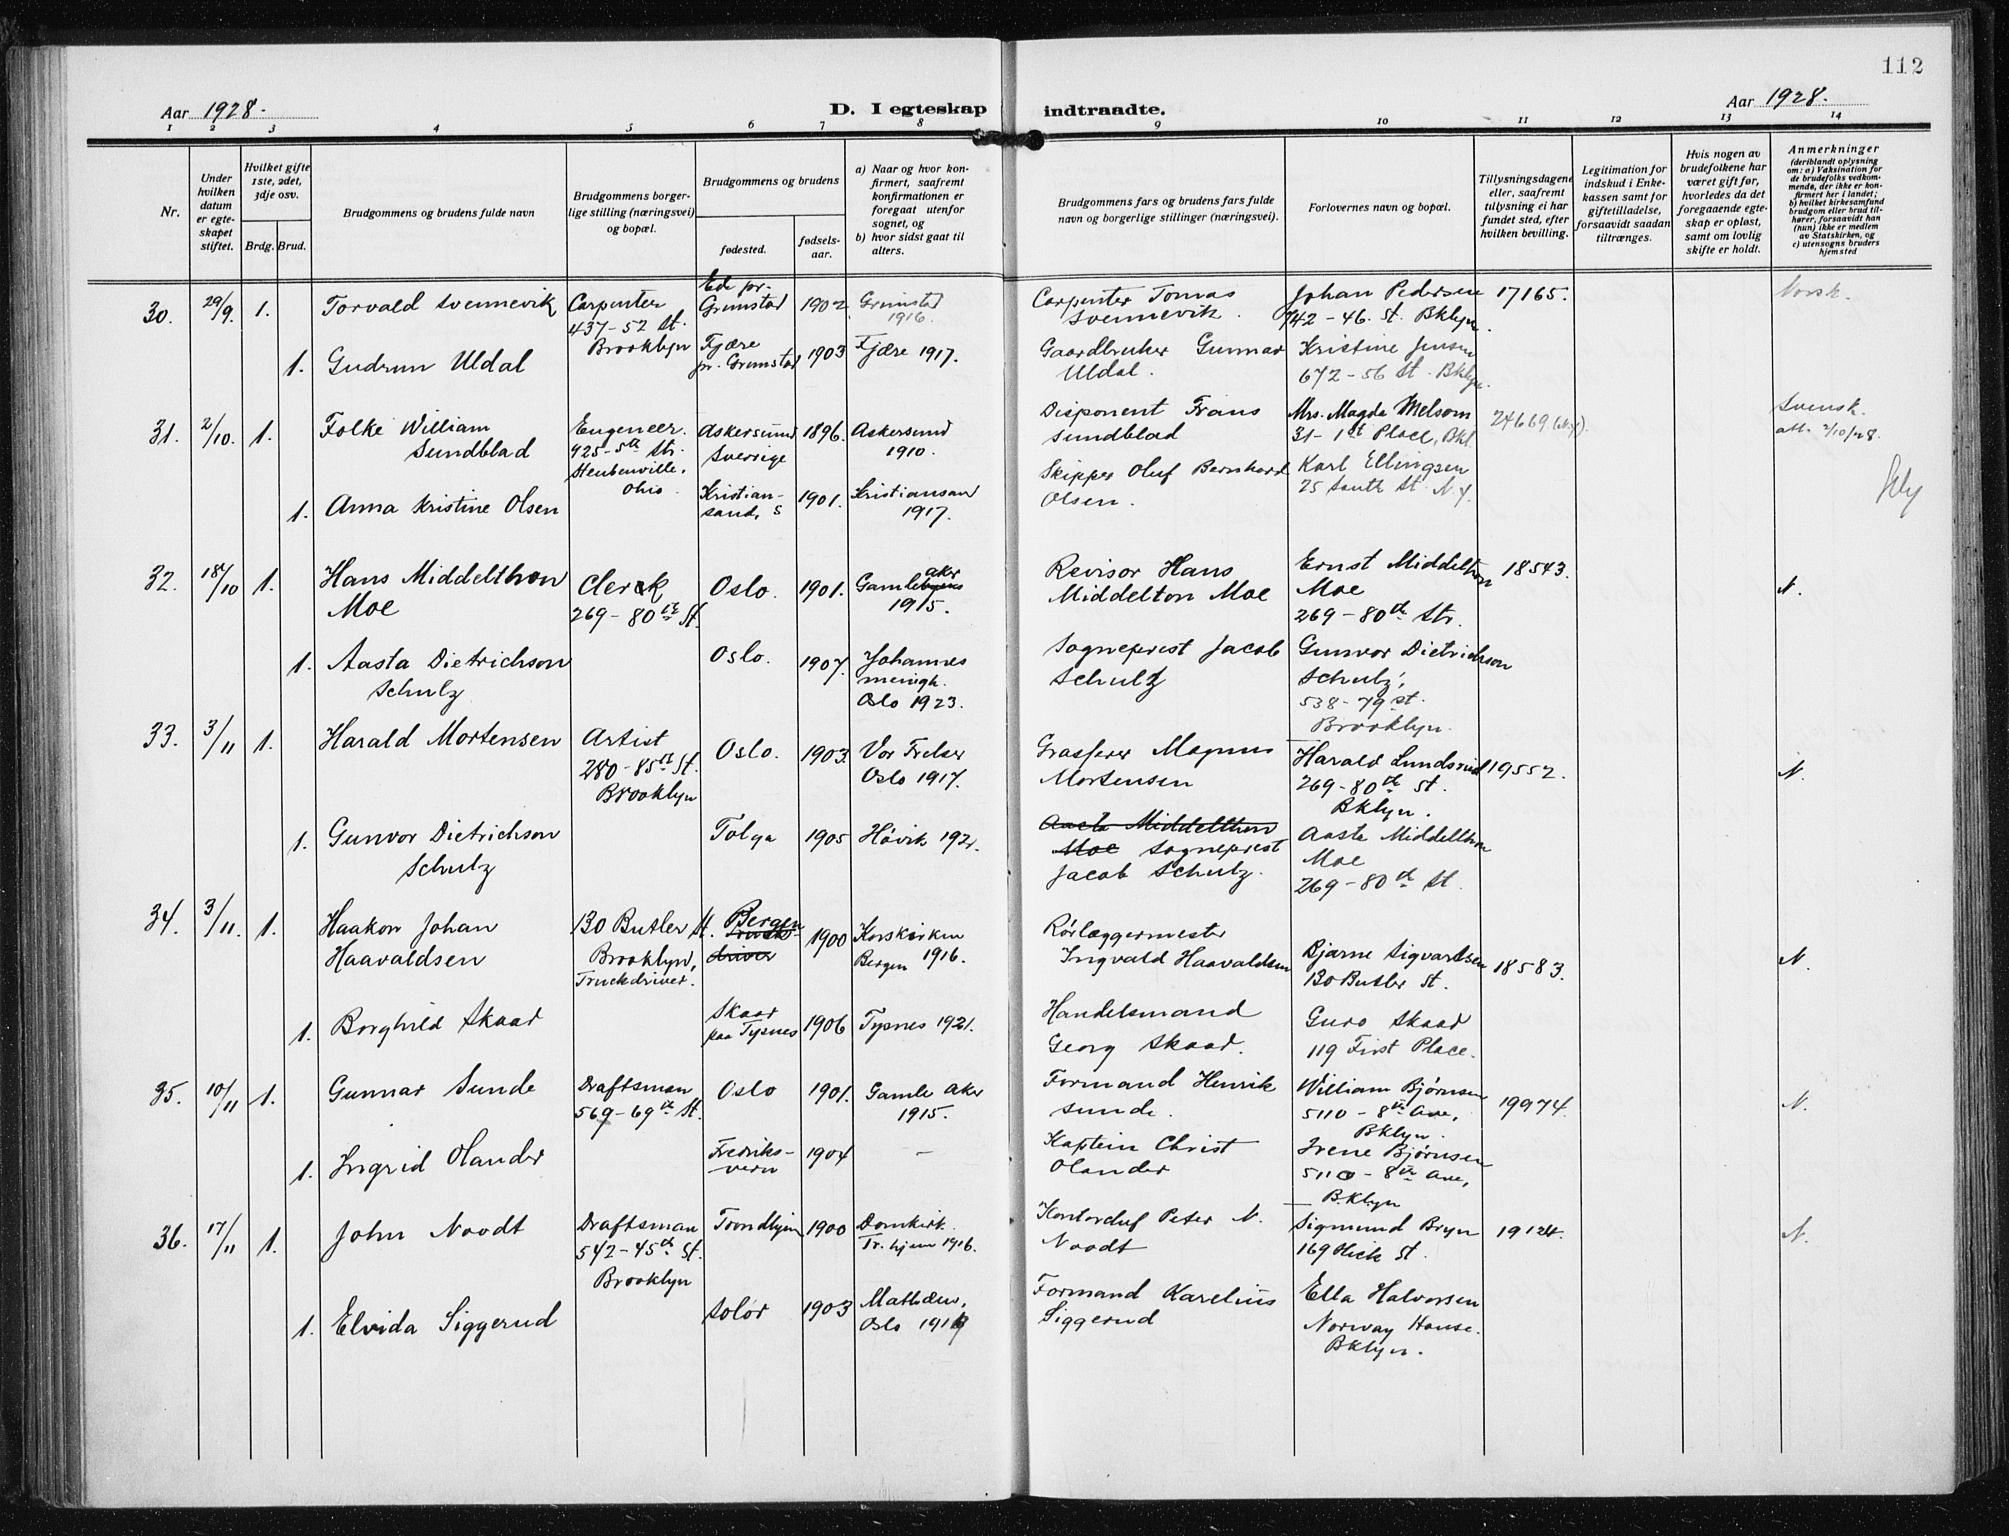 112
Aar 1928.
D. I egteskap indtraadte.
Aar 1928.
1 2 3 4 5 6 7 8 9 10 11 12 13 14
Nr.
Under
hvilken
datum
er egte-
skapet
stiftet.
Hvilket gifte
1ste, 2det,
3dje osv.
Brdg. Brud.
Brudgommens og brudens fulde navn
Brudgommens borger-
lige stilling (næringsvei)
og bopæl.
Brudgommens og brudens
fødested.
fødsels-
aar.
a) Naar og hvor kon-
firmert, saafremt
konfirmationen er
foregaat utenfor
sognet, og
b) hvor sidst gaat til
alters.
Brudgommens fars og brudens fars fulde
navn og borgerlige stillinger (næringsvei).
Forlovernes navn og bopæl.
Tillysningsdagene
eller, saafremt
tillysning ei har
fundet sted, efter
hvilken bevilling.
Legitimation for
indskud i Enke-
kassen samt for
giftetilladelse,
forsaavidt saadan
tiltrænges.
Hvis nogen av
brudefolkene har
været gift før,
hvorledes da det
foregaaende egte-
skap er opløst,
samt om lovlig
skifte er holdt.
Anmerkninger
(deriblandt oplysning
om: a) Vaksination for
de brudefolks vedkom-
mende, der ikke er kon-
firmert her i landet;
b) hvilket kirkesamfund
brudgom eller brud til-
hører, forsaavidt han
(hun) ikke er medlem
av Statskirken, og
c) utensogns bruders
hjemsted
30. 29/9. 1. Torvald Svennevik
Carpenter
437-52 St.
Brooklyn
Ede pr.
Grimstad
1902
Grimstad
1916.
Carpenter Tomas
Svennevik.
Johan Pedersen
742-46. St. Bklyn.
17165.
Norsk.
1. Gudrun Uldal
Fjære
pr. Grimstad
1903
Fjære 1917.
Gaardbruker Gunnar
Uldal.
Kristine Jensen
672-56 St. Bklyn.
31. 2/10. 1. Folke William
Sundblad
Engeneer.
925-5th Str.
Steubenville,
Ohio.
Askersund
Sverrige
1896.
Askersund
1910.
Disponent Frans
Sundblad
Mrs. Magda Melsom
31-1st Place, Bkl.
24669 (N.Y.).
Svensk.
att. 2/10/28.
1. Anna Kristine Olsen
Kristian-
sand, S
1901.
Kristiansand
1917.
Skipper Oluf Bernhard
Olsen.
Karl Ellingsen
25 South St. N.Y.
32. 18/10 1. Hans Middelthon
Moe
Clerk
269-80th St.
Oslo. 1901.
Gamlebyens aker
1915.
Revisor Hans
Middelton Moe
Ernst Middelthon
Moe
269-80th Str.
18543.
N.
1. Aasta Dietrichson
Schulz
Oslo. 1907.
Johannes
menigh.
Oslo 1923.
Sogneprest Jacob
Schultz
Gunvor Dietrichson
Schulz,
538-79 st.
Brooklyn.
33. 3/11 1. Harald Mortensen
Artist
280-85th St.
Brooklyn
Oslo. 1903.
Vor Frelser
Oslo 1917.
Grosserer Magnus
Mortensen
Harald Lundsrud
269-80th St.
Bklyn.
19552.
N.
1. Gunvor Dietrichson
Schulz
Tolga 1905 Høvik 1921.
Aasta Middelthon
Moe Sogneprest
Jacob Schulz.
Aasta Middelthon
Moe
269-80th St.
34. 3/11. 1. Haakon Johan
Haavaldsen
130 Butler St.
Brooklyn,
Truckdriver.
Bergen
Truck-
driver
1900
Korskirken
Bergen 1916.
Rørlæggermester
Ingvald Haavaldsen
Bjarne Sigvartsen
130 Butler St.
18583.
N.
1. Borghild Skaar
Skaar
paa Tysnes
1906 Tysnes 1921.
Handelsmand
Georg Skaar.
Guro Skaar
119 First Place.
35. 10/11 1. Gunnar Sunde
Draftsman
569-69th St.
Oslo 1901.
Gamle Aker
1915.
Formand Henrik
Sunde.
William Bjørnsen
5110-8th Ave,
Bklyn.
19974.
N.
1. Ingrid Olander
Fredriks-
vern
1904 -
Kaptein Christ
Olander
Irene Bjørnsen
5110-8th Ave,
Bklyn
36. 17/11 1. John Noodt
Draftsman
542-45th St.
Brooklyn
Trondhjem 1900
Domkirk.
Tr.hjem 1916.
Kontorchef Peter N.
Noodt
Sigmund Bryn
169 Hick St.
19124.
N.
1. Elvida Siggerud
Solør 1903
Matthæus,
Oslo 1919
Formand Karelius
Siggerud
Ella Halvorsen
Norway House.
Bklyn.